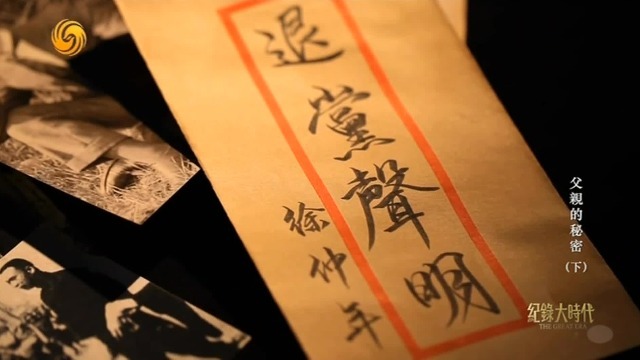 退黨聲明
徐仲年
父親的秘密
(下)
紀錄大時代
THE GREAT ERA